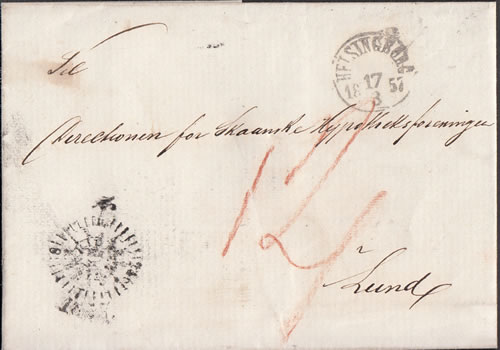 Til
HELSINGBORG
17
18 57
3
Directionen for Skaanske Hypotheksforeningen
12
i
Lund